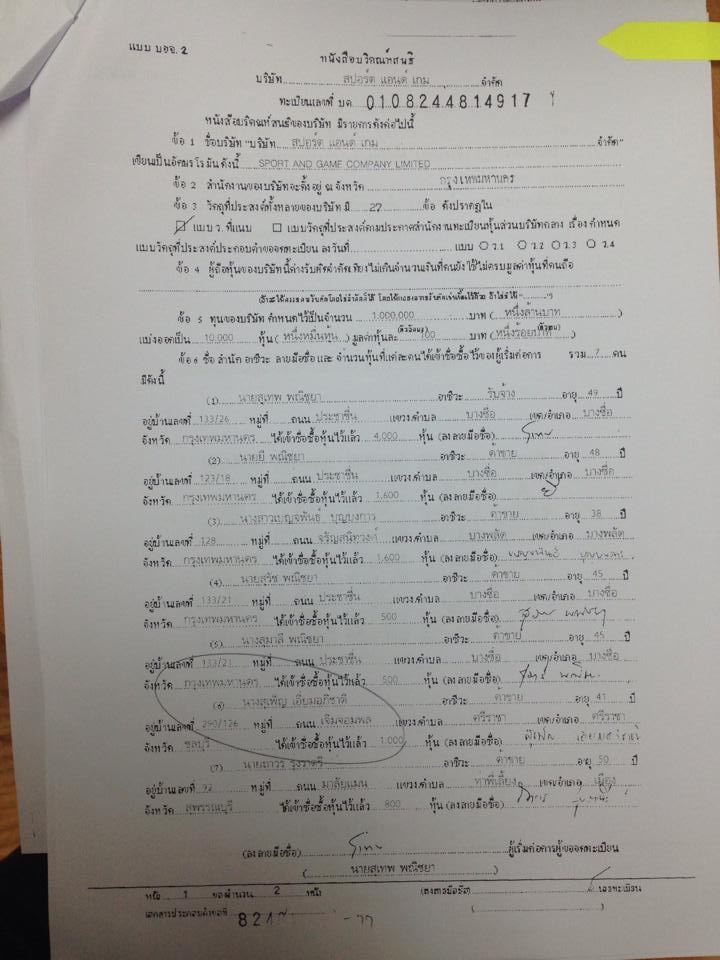 แบบ บอจ. 2
หนังสือบริคณห์สนธิ
บริษัท สปอร์ต แอนด์ เกม จำกัด
ทะเบียนเลขที่ บค. 0108244814917
หนังสือบริคณห์สนธิของบริษัท มีรายการดังต่อไปนี้
ข้อ 1 ชื่อบริษัท "บริษัท สปอร์ต แอนด์ เกม จำกัด"
เขียนเป็นอักษรโรมันดังนี้ SPORT AND GAME COMPANY LIMITED
ข้อ 2 สำนักงานของบริษัทจะตั้งอยู่ ณ จังหวัด กรุงเทพมหานคร
ข้อ 3 วัตถุที่ประสงค์ทั้งหลายของบริษัท มี 27 ข้อ ดังปรากฏใน
แบบ ว. ที่แนบ แบบวัตถุที่ประสงค์ตามประกาศสำนักงานทะเบียนหุ้นส่วนบริษัทกลาง เรื่อง กำหนด
แบบวัตถุที่ประสงค์ประกอบคำขอจดทะเบียน ลงวันที่ แบบ ว.1 ว.2 ว.3 ว.4
ข้อ 4 ผู้ถือหุ้นของบริษัทนี้ต่างรับผิดจำกัดเพียงไม่เกินจำนวนเงินที่ตนยังใช้ไม่ครบมูลค่าหุ้นที่ตนถือ
ข้อ 5 ทุนของบริษัท กำหนดไว้เป็นจำนวน 1,000,000 บาท (หนึ่งล้านบาท)
แบ่งออกเป็น 10,000 หุ้น (หนึ่งหมื่นหุ้น) มูลค่าหุ้นละ 100 บาท (หนึ่งร้อยบาท)
ข้อ 6 ชื่อ สำนัก อาชีวะ ลายมือชื่อ และ จำนวนหุ้นที่แต่ละคนได้เข้าชื่อซื้อไว้ของผู้เริ่มก่อการ รวม 7 คน
มีดังนี้
(1) นายสุเทพ พณิชยา อาชีวะ รับจ้าง อายุ 49 ปี
อยู่บ้านเลขที่ 133/26 หมู่ที่ ถนน ประชาชื่น แขวง/ตำบล บางซื่อ เขต/อำเภอ บางซื่อ
จังหวัด กรุงเทพมหานคร ได้เข้าชื่อซื้อหุ้นไว้แล้ว 4,000 หุ้น (ลงลายมือชื่อ)
(2) นายยี พณิชยา อาชีวะ ค้าขาย อายุ 48 ปี
อยู่บ้านเลขที่ 123/18 หมู่ที่ ถนน ประชาชื่น แขวง/ตำบล บางซื่อ เขต/อำเภอ บางซื่อ
จังหวัด กรุงเทพมหานคร ได้เข้าชื่อซื้อหุ้นไว้แล้ว 1,600 หุ้น (ลงลายมือชื่อ)
(3) นางสาวเบญจพันธ์ บุญบงการ อาชีวะ ค้าขาย อายุ 38 ปี
อยู่บ้านเลขที่ 128 หมู่ที่ ถนน จรัญสนิทวงศ์ แขวง/ตำบล บางพลัด เขต/อำเภอ บางพลัด
จังหวัด กรุงเทพมหานคร ได้เข้าชื่อซื้อหุ้นไว้แล้ว 1,600 หุ้น (ลงลายมือชื่อ)
(4) นายสุรัช พณิชยา อาชีวะ ค้าขาย อายุ 45 ปี
อยู่บ้านเลขที่ 133/21 หมู่ที่ ถนน ประชาชื่น แขวง/ตำบล บางซื่อ เขต/อำเภอ บางซื่อ
จังหวัด กรุงเทพมหานคร ได้เข้าชื่อซื้อหุ้นไว้แล้ว 500 หุ้น (ลงลายมือชื่อ)
(5) นางสุมาลี พณิชยา อาชีวะ ค้าขาย อายุ 45 ปี
อยู่บ้านเลขที่ 133/21 หมู่ที่ ถนน ประชาชื่น แขวง/ตำบล บางซื่อ เขต/อำเภอ บางซื่อ
จังหวัด กรุงเทพมหานคร ได้เข้าชื่อซื้อหุ้นไว้แล้ว 500 หุ้น (ลงลายมือชื่อ)
(6) นางสุเพ็ญ เอี่ยมอภิชาติ อาชีวะ ค้าขาย อายุ 41 ปี
อยู่บ้านเลขที่ 290/126 หมู่ที่ ถนน เจิมจอมพล แขวง/ตำบล ศรีราชา เขต/อำเภอ ศรีราชา
จังหวัด ชลบุรี ได้เข้าชื่อซื้อหุ้นไว้แล้ว 1,000 หุ้น (ลงลายมือชื่อ)
(7) นายถาวร รุ่งราตรี อาชีวะ ค้าขาย อายุ 50 ปี
อยู่บ้านเลขที่ 92 หมู่ที่ ถนน มาลัยแมน แขวง/ตำบล ท่าพี่เลี้ยง เขต/อำเภอ เมือง
จังหวัด สุพรรณบุรี ได้เข้าชื่อซื้อหุ้นไว้แล้ว 800 หุ้น (ลงลายมือชื่อ)
(ลงลายมือชื่อ) ผู้เริ่มก่อการผู้ขอจดทะเบียน
(นายสุเทพ พณิชยา)
หน้า 1 ของจำนวน 2 หน้า (ลงลายมือชื่อ) นายทะเบียน
เอกสารประกอบคำขอที่